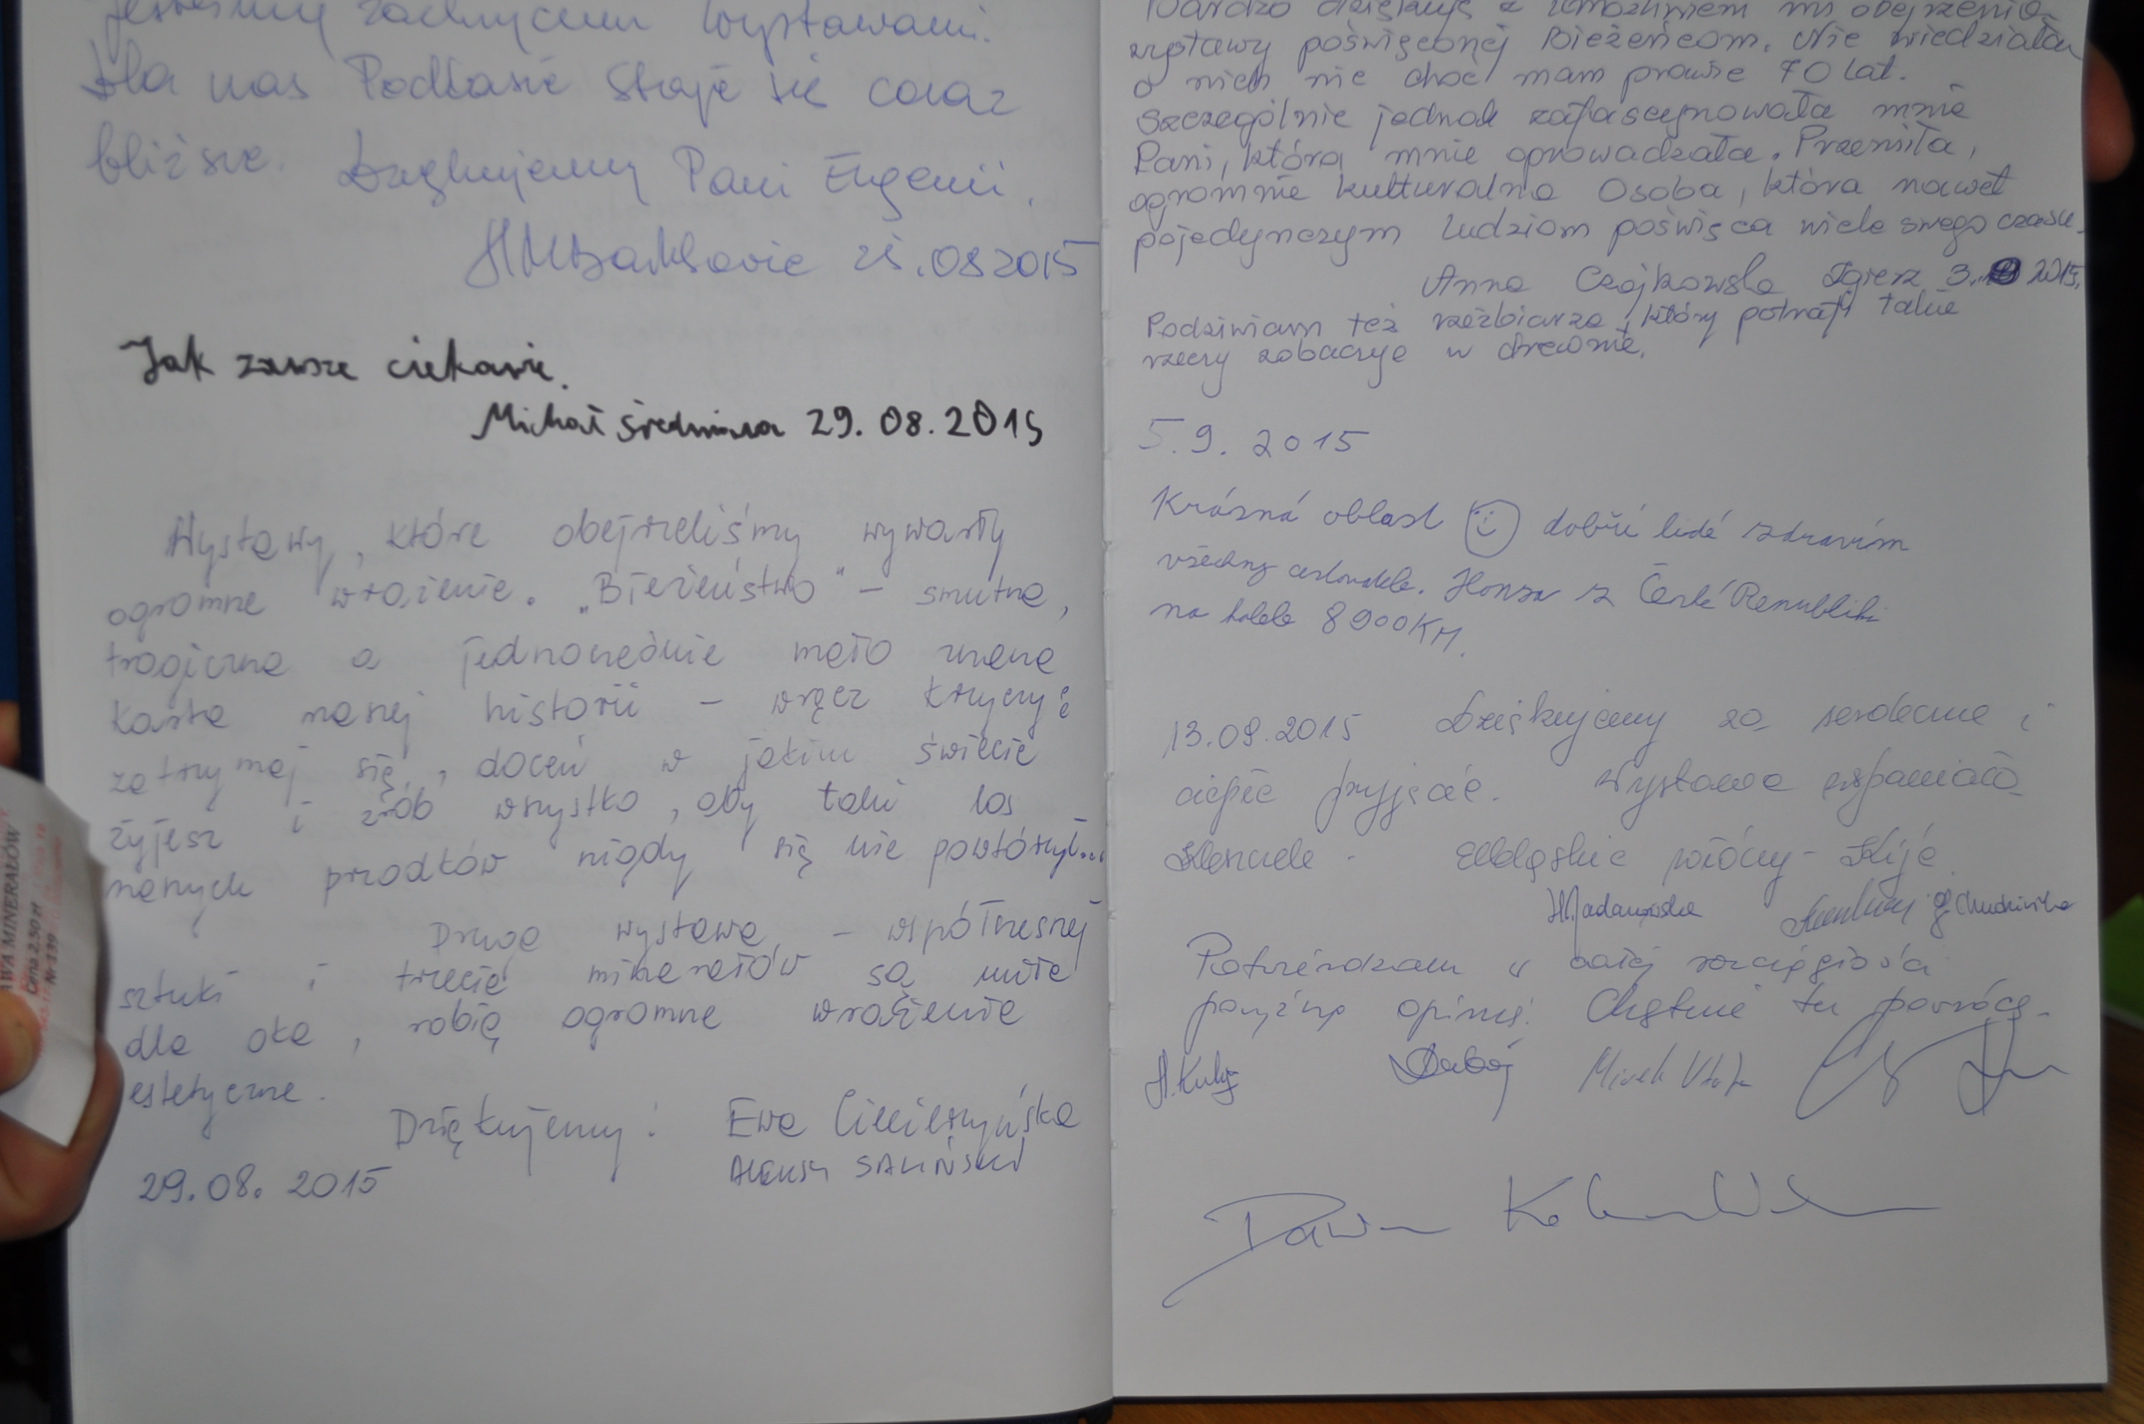 Jesteśmy zachwyceni wystawami.
Dla nas Podlasie staje się coraz
bliższe. Dziękujemy Pani Eugenii.
25.08 2015
Jak zawsze ciekawie.
Michał Średniawa 29.08.2015
Wystawy, które obejrzeliśmy wywarły
ogromne wrażenie. „Bieżeństwo" – smutna,
tragiczna a jednocześnie mało znana
karta naszej historii – wręcz krzyczy:
zatrzymaj się, doceń w jakim świecie
żyjesz i zrób wszystko, aby taki los
naszych przodków nigdy się nie powtórzył...
Druga wystawa, – współczesnej
sztuki i trzecia minerałów są miłe
dla oka, robią ogromne wrażenie
estetyczne.
Dziękujemy! Ewa Ciecierzyńska
29.08. 2015 SALIŃSKI
AWA MINERAŁÓW
Cena 2,50 zł
Bardzo dziękuję z umożliwieniem mi obejrzenia
wystawy poświęconej Bieżeńcom. Nie wiedziałam
o nich nic choć mam prawie 70 lat.
Szczególnie jednak zafascynowała mnie
Pani, która mnie oprowadzała. Przemiła,
ogromnie kulturalna osoba, która nawet
pojedynczym ludziom poświęca wiele swego czasu.
Anna Czajkowska Zgierz 3. 2015.
Podziwiam też rzeźbiarza, który potrafi takie
rzeczy zobaczyć w drewnie.
5.9. 2015
Krásná oblast dobří lidé zdravím
všechny cestovatele. Honza z České Republiki
na kole 8900KM.
13.09.2015 Dziękujemy za serdeczne i
ciepłe przyjęcie. Wystawa wspaniała
Elbląskie północy - Kije
Potwierdzam w całej rozciągłości
powyższą opinię! Chętnie tu powrócę.
Mirek